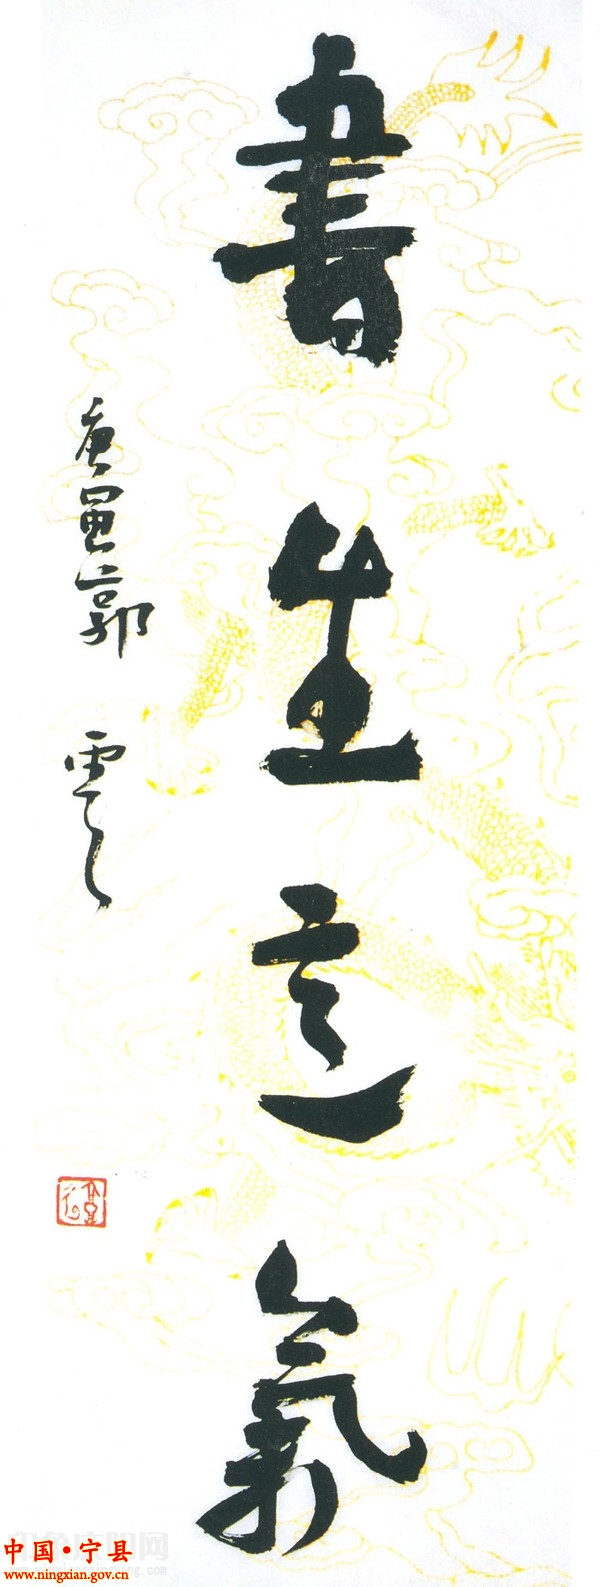 書生意氣
庚寅郭雲
中国·宁县
www.ningxian.gov.cn